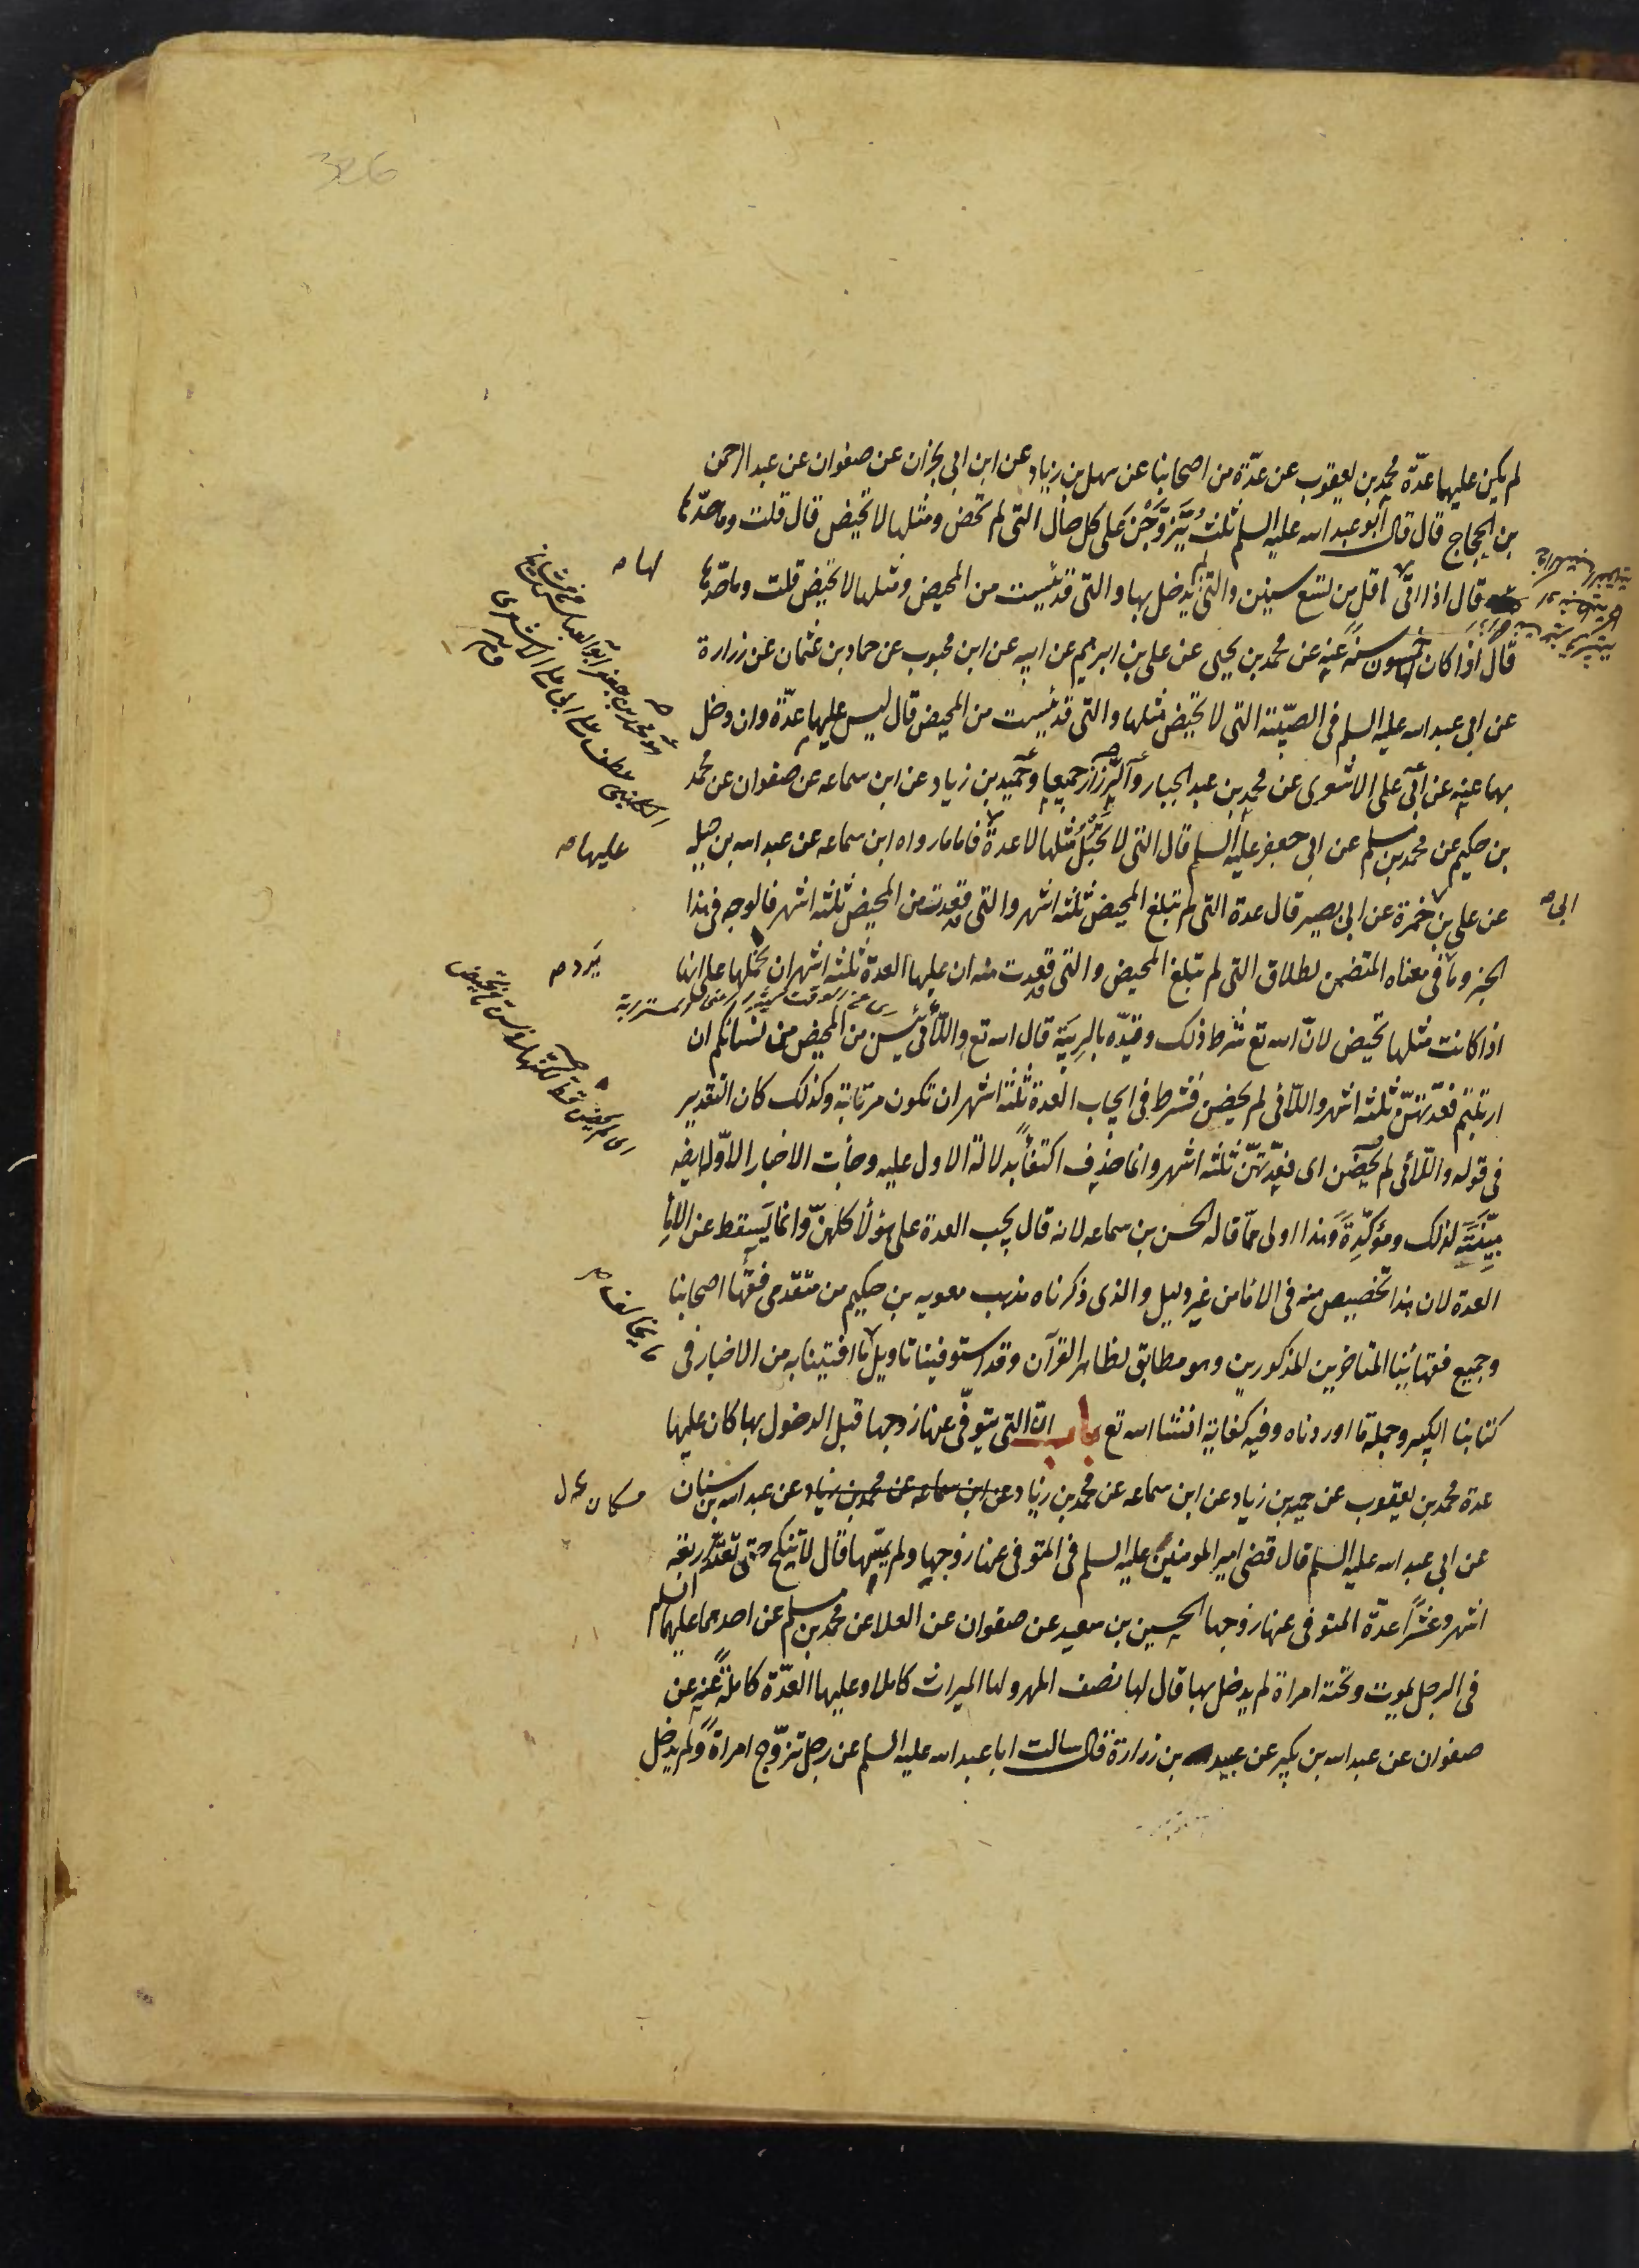 لم يكن عليهما عدّة محمد بن يعقوب عن عدّة من اصحابنا عن سهل بن زياد عن ابن ابى نجران عن صفوان عن عبد الرحمن
بن الحجاج قال قال ابو عبد الله عليه السلم ثلث يتزوّجن على كل حال التى لم تحض ومثلها لا تحيض قال قلت وما حدّها
قال اذا اتى لها اقل من تسع سنين والتى لم يدخل بها والتى قد يئست من المحيض ومثلها لا تحيض قلت وما حدّها
قال اذا كان لها خمسون سنة عنه عن محمد بن يحيى عن على بن ابرهيم عن ابيه عن ابن محبوب عن حماد بن عثمان عن زرارة
عن ابى عبد الله عليه السلم فى الصبيّة التى لا تحيض مثلها والتى قد يئست من المحيض قال ليس عليها عدّة وان دخل
بهما عنه عن ابى على الاشعرى عن محمد بن عبد الجبار والرزاز جميعا وحميد بن زياد عن ابن سماعه عن صفوان عن محمد
بن حكيم عن محمد بن مسلم عن ابى جعفر عليه السلم قال التى لا تحبل مثلها لا عدة فاما ما رواه ابن سماعه عن عبد الله بن جبلة
عن على بن حمزة عن ابى بصير قال عدة التى لم تبلغ المحيض ثلثه اشهر والتى قد قعدت من المحيض ثلثه اشهر فالوجه فى هذا
الخبر وما فى معناه المتضمن لطلاق التى لم تبلغ المحيض والتى قد قعدت منه ان عليها العدة ثلثه اشهر ان نحملها على انها
اذا كانت مثلها تحيض لانّ الله تع شرط ذلك وقيّده بالريبة قال الله تع واللّائى يئسن من المحيض من نسائكم ان
ارتبتم فعدّتهنّ ثلثه اشهر واللّائى لم يحضن فشرط فى ايجاب العدة ثلثة اشهر ان تكون مرتابة وكذلك كان التقدير
فى قوله واللّائى لم يحضن اى فعدّتهنّ ثلثه اشهر وانما حذف اكتفاءً بدلالة الاول عليه وجأت الاخبار الاوّلة ايضا
مبيّنة لذلك ومؤكّدة وهذا اولى ممّا قاله الحسن بن سماعه لانه قال يجب العدة على هؤلأ كلهنّ وانما يسقط عن الامأ
العدة لان هذا تخصيص منه فى الامأ من غير دليل والذى ذكرناه مذهب معويه بن حكيم من متقدمى فقهأ اصحابنا
وجميع فقهائنا المتاخرين المذكورين وهو مطابق لظاهر القرآن وقد استوفينا تاويل ما افتينا به من الاخبار فى
كتابنا الكبير وجملة ما اوردناه وفيه كفاية انشأ الله تع باب انّ التى يتوفّى عنها زوجها قبل الدخول بها كان عليها
عدة محمد بن يعقوب عن حميد بن زياد عن ابن سماعه عن محمد بن زياد عن ابن سماعه عن محمد بن زياد عن عبد الله بن سنان
عن ابى عبد الله عليه السلم قال قضى امير المومنين عليه السلم فى المتوفى عنها زوجها ولم يمسّها قال لا تنكح حتى تعتدّ اربعة
اشهر وعشراً عدّة المتوفى عنها زوجها الحسين بن سعيد عن صفوان عن العلا عن محمد بن مسلم عن احدهما عليهما السلم
فى الرجل يموت وتحته امراة لم يدخل بها قال لها نصف المهر ولها الميراث كاملا وعليها العدّة كاملة عنه عن
صفوان عن عبد الله بن بكير عن عبيد بن زرارة قال سالت ابا عبد الله عليه السلم عن رجل تزوّج امراة ولم يدخل
لها
عليها
ابى
يخالف
326